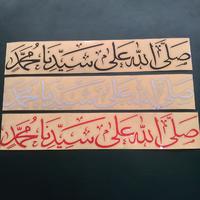 صَلَّى اللهُ عَلَى سَيِّدِنَا مُحَمَّد
صَلَّى اللهُ عَلَى سَيِّدِنَا مُحَمَّد
صَلَّى اللهُ عَلَى سَيِّدِنَا مُحَمَّد